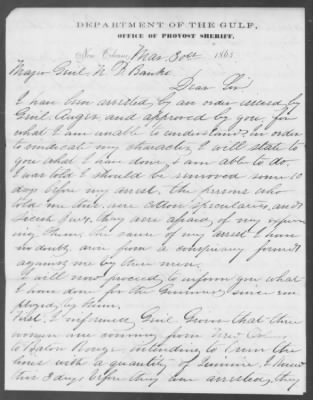 DEPARTMENT OF THE GULF,
OFFICE OF PROVOST SHERIFF,
New Orleans, Mar 30th 186
Major Genl. N P Banks
Dear Sir
I have been arrested by an order issued by
Genl Augur and approved by you, for
what I am unable to understand. in order
to vindicate my character, I will state to
you what I have done & am able to do.
I was told I should be removed some 10
days before my arrest. The persons who
told me this were cotton speculators, and
Jews, they were afraid of my expo
them. the cause of my arrest I have
no doubt, arose from a conspiracy formed
against me by these men.
I will now proceed to inform you what
I have done for the since em
ployed by them.
1st. I informed Genl Grover that three
women were coming from New
to Baton Rouge intending to run the
lines with a quantity of Quinine. I knew
this 3 days before they were arrested, they